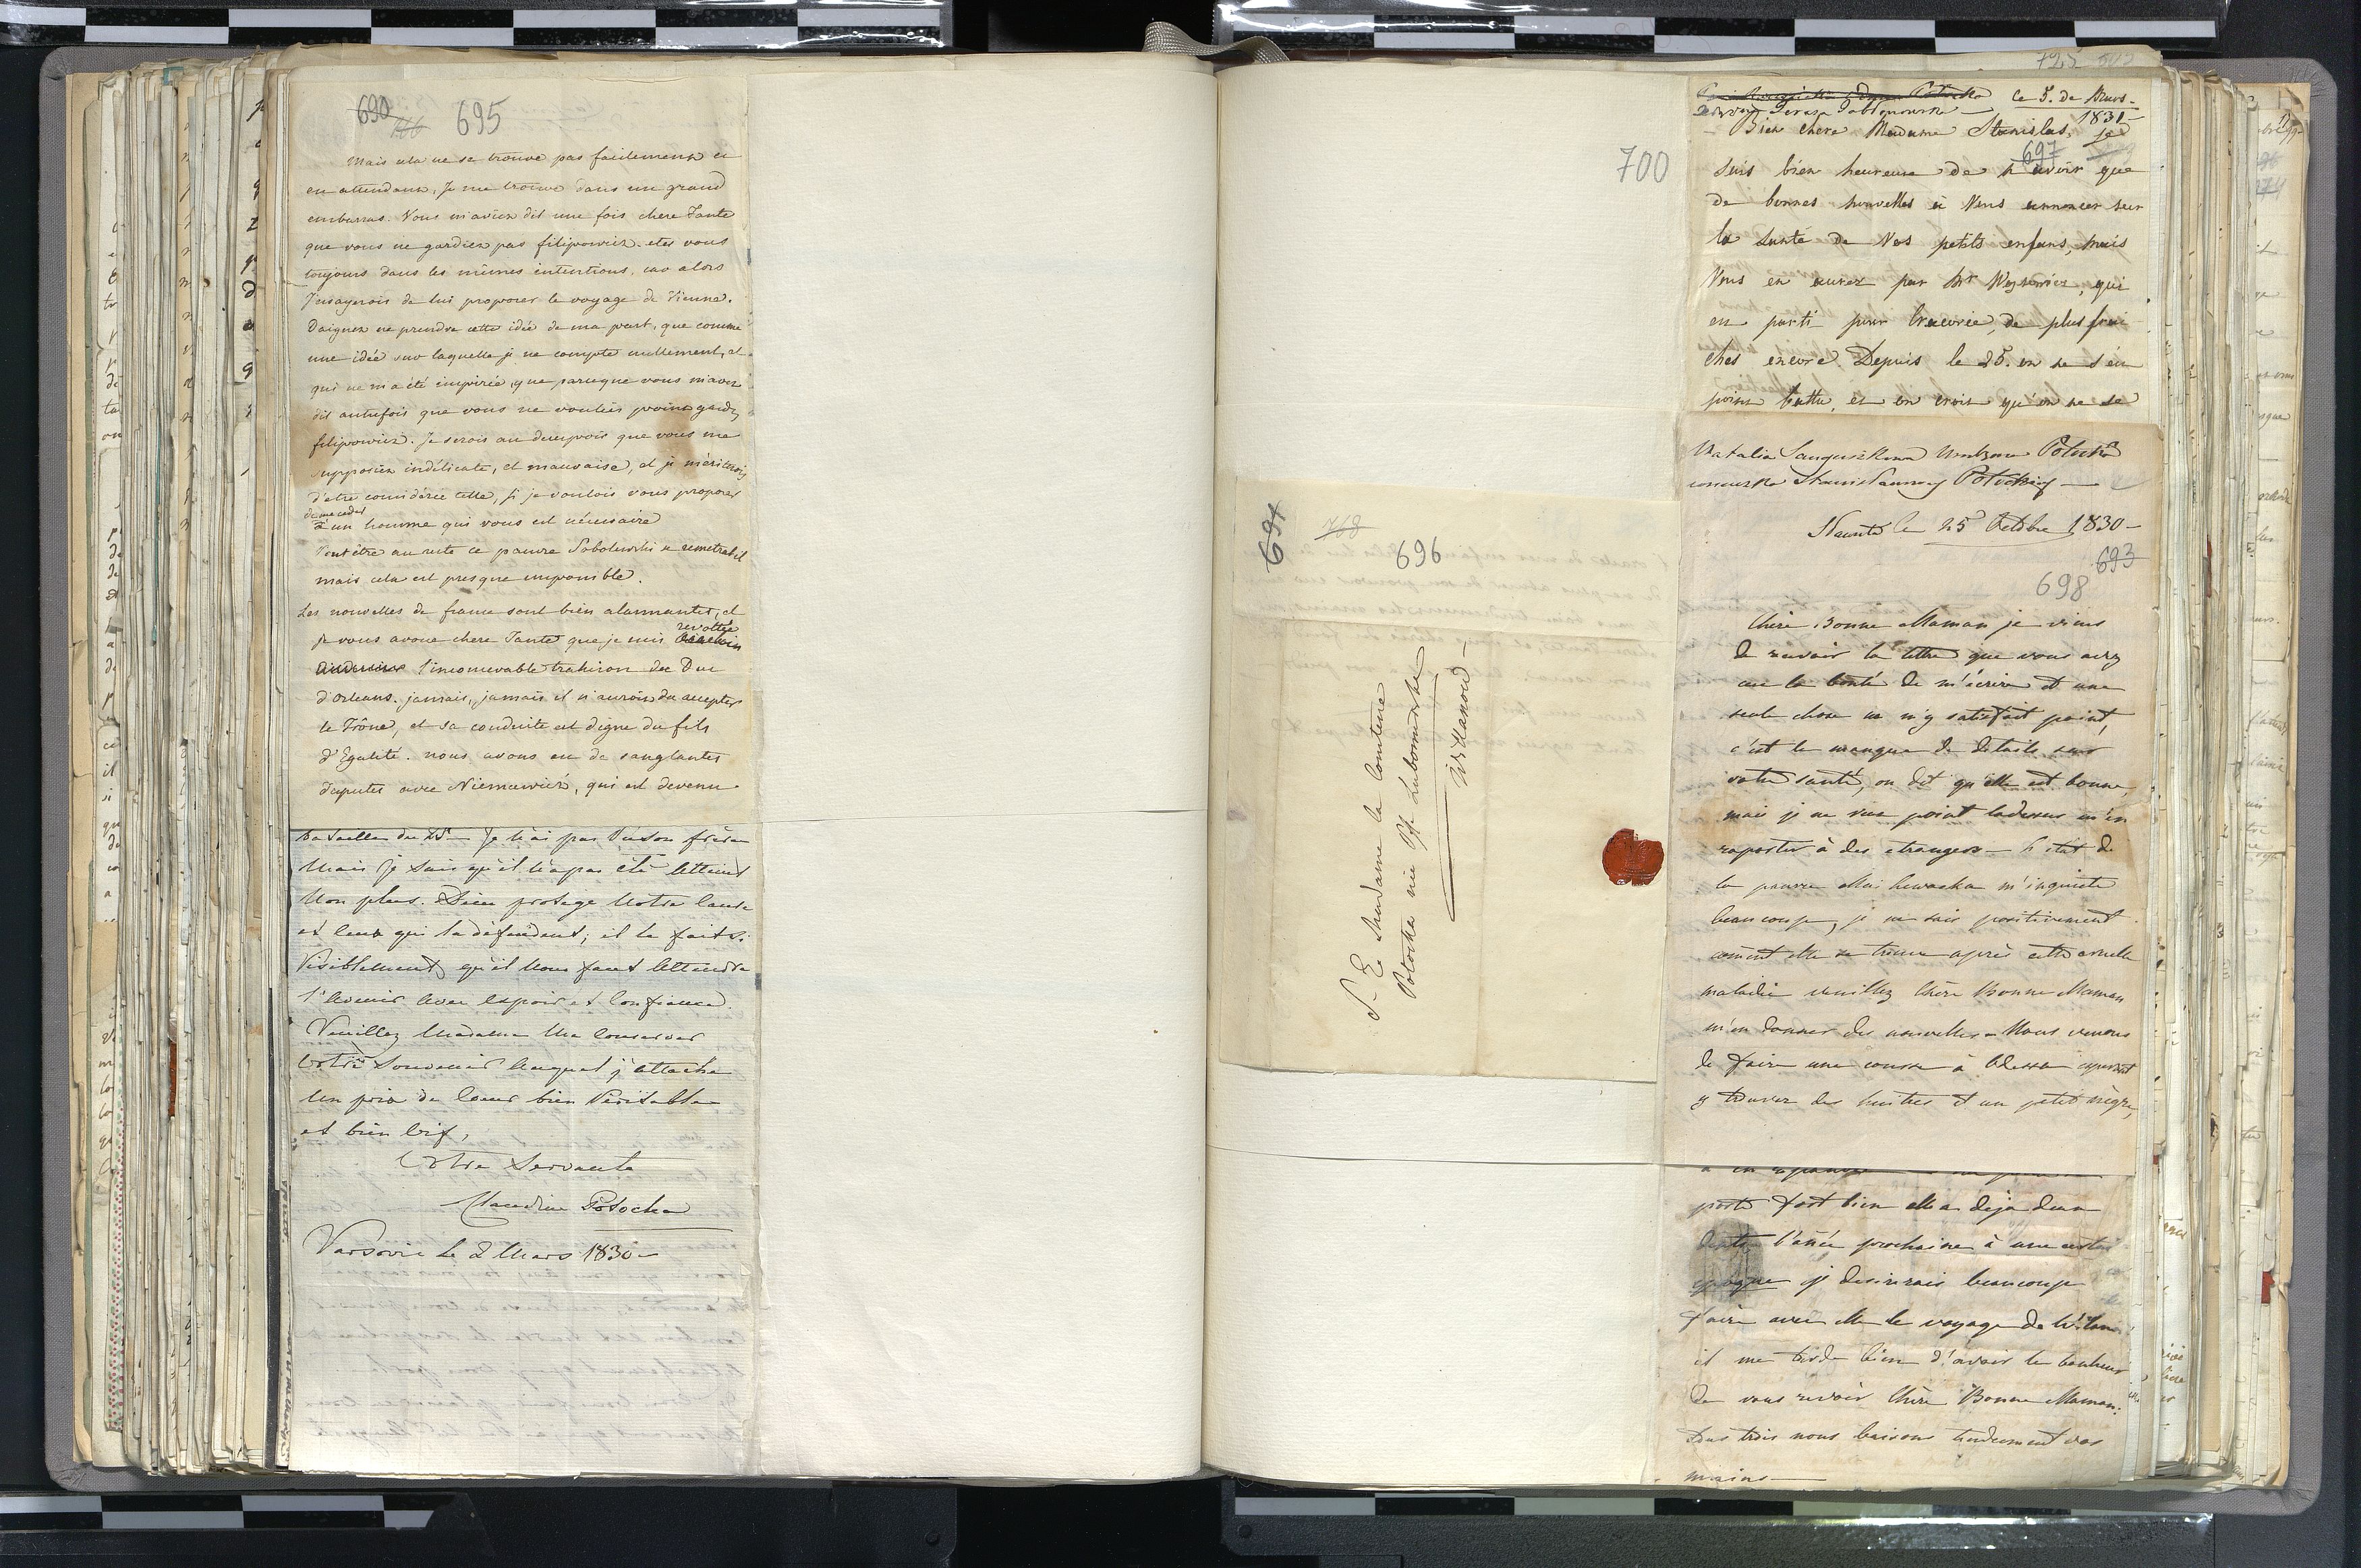 690
166 695
Mais cela ne se trouve pas facilement et
en attendant, Je me trouve dans un grand
embarras. Vous m'aviez dit une fois chere Tante
que vous ne gardiez pas filipowicz. etes vous
toujours dans les mêmes intentions, car alors
J'essayerois de lui proposer le voyage de Vienne.
Daignez ne prendre cette idée de ma part, que comme
une idée sur laquelle je ne compte nullement, et
qui ne m'a été inspirée, que parceque vous m'avez
dit autrefois que vous ne vouliez point garder
filipowicz. Je serois au desespoir que vous me
supposiez indélicate, et mauvaise, et je mériterois
d'etre considérée telle, si je voulois vous proposer
de me ceder
un homme qui vous est nécessaire
Peut être au reste ce pauvre Sobolewski se remettrat'il
mais cela est presque impossible.
Les nouvelles de france sont bien alarmantes, et
revoltée
je vous avoue chere Tante que je suis
l'inconcevable trahison du Duc
d'Orleans. jamais, jamais il n'auroit du accepter
le Trône, et sa conduite est digne du fils
d'Egalité. nous avons eu de sanglantes
disputes avec Niemcewicz, qui est devenu
bataille du 25. Je n'ai pas vu son frère
Mais je sais qu'il n'a pas été atteint
Non plus. Dieu protège Notre Cause
et ceux qui la défendent; il le fait si
Visiblement qu'il nous faut attendre
l'avenir avec espoir et confiance.
Veuillez Madame Me conserver
Votre Souvenir auquel j'attache
un prix de Coeur bien Véritable
et bien vif,
Votre Servante
Claudine Potocka
Varsovie le 2 Mars 1830
700
694
768
696
S. E. Madame la Comtesse
Potocka née Pss Lubomirska
Willanow
725
Ce 5. de Mars
1831
Bien chere Madame Stanislas, je
697
suis bien heureuse de n'avoir que
de bonnes nouvelles à Vous annoncer sur
la Santé de Vos petits enfans, mais
Vous en aurez par Mr , qui
est parti pour , de plus frai
ches encore. Depuis le 25. on ne s'est
point battu, et on croit qu'on ne se
Natalia Sanguszkowa Potocka
Stanisławowej Potockiej
le 25 Octobre 1830
693
698
Chère Bonne Maman je viens
de recevoir la lettre que vous avez
eue la bonté de m'écrire et une
seule chose ne m'y satisfait point,
c'est le manque de détails sur
votre santé, on dit qu'elle est bonne,
mais je ne veux point ladessus m'en
rapporter à des etrangers - L'état de
la pauvre m'inquiete
beaucoup, je ne sais positivement
comment elle se trouve après cette cruelle
maladie veuillez Chère Bonne Maman
m'en donner des nouvelles - Nous venons
de faire une course à Odessa
y trouver des huitres et un petit nègre,
porte fort bien elle a déja deux
dents l'année prochaine à une certaine
epoque je desirerais beaucoup
faire avec elle le voyage de
il me tarde bien d'avoir le bonheur
de vous revoir Chère Bonne Maman.
Tous trois nous baisons tendrement vos
mains